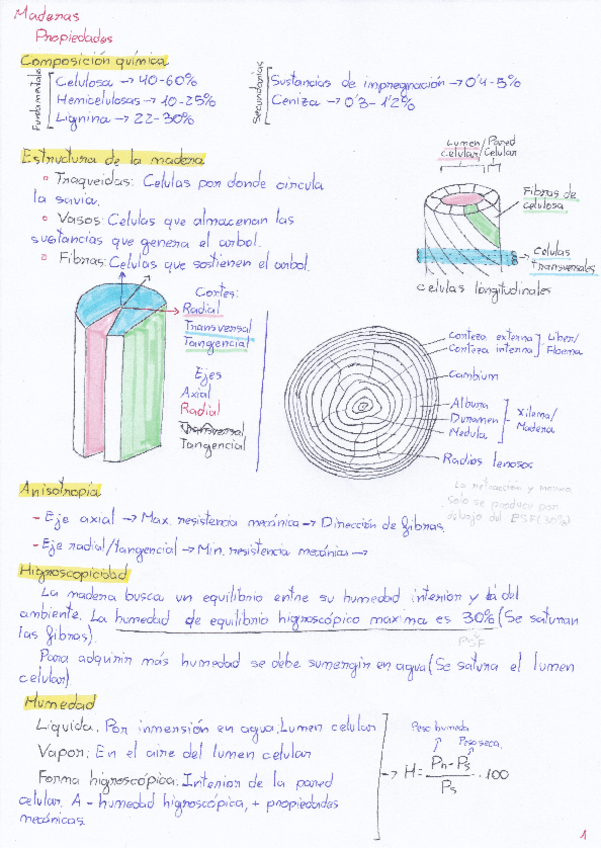 Maderas
Propiedades
Composición química
Fundamentales
Celulosa → 40-60%
Hemicelulosas → 10-25%
Lignina → 22-30%
Secundarias
Sustancias de impregnación → 0'4-5%
Ceniza → 0'3-1'2%
Estructura de la madera
Traqueidas: Celulas por donde circula
la savia.
Vasos: Celulas que almacenan las
sustancias que genera el arbol.
Fibras: Celulas que sostienen el arbol.
Lumen/Pared
celular/Celular
Fibras de
celulosa
Celulas
transversales
celulas longitudinales
Cortes:
Radial
Transversal
Tangencial
Ejes
Axial
Radial
Transversal
Tangencial
Corteza externa
Corteza interna
Liber/
Floema
Cambium
Albura
Duramen
Medula
Xilema/
Madera
Radios leñosos
Anisotropía
- Eje axial → Max. resistencia mecánica → Dirección de fibras.
- Eje radial/tangencial → Min. resistencia mecánica →
La retracción y merma
Solo se producir por
debajo del PSF (30%)
Higroscopicidad
La madera busca un equilibrio entre su humedad interior y la del
ambiente. La humedad de equilibrio higroscópico maxima es 30% (Se saturan
las fibras).
PSF
Para adquirir más humedad se debe sumergir en agua (Se satura el lumen
celular)
Humedad
Liquida. Por inmersión en agua. Lumen celular
Vapor: En el aire del lumen celular
Forma higroscópica. Interior de la pared
celular. A - humedad higroscópica, + propiedades
mecánicas.
Peso humeda
Peso seca
→ H = Ph - Ps / Ps · 100
1